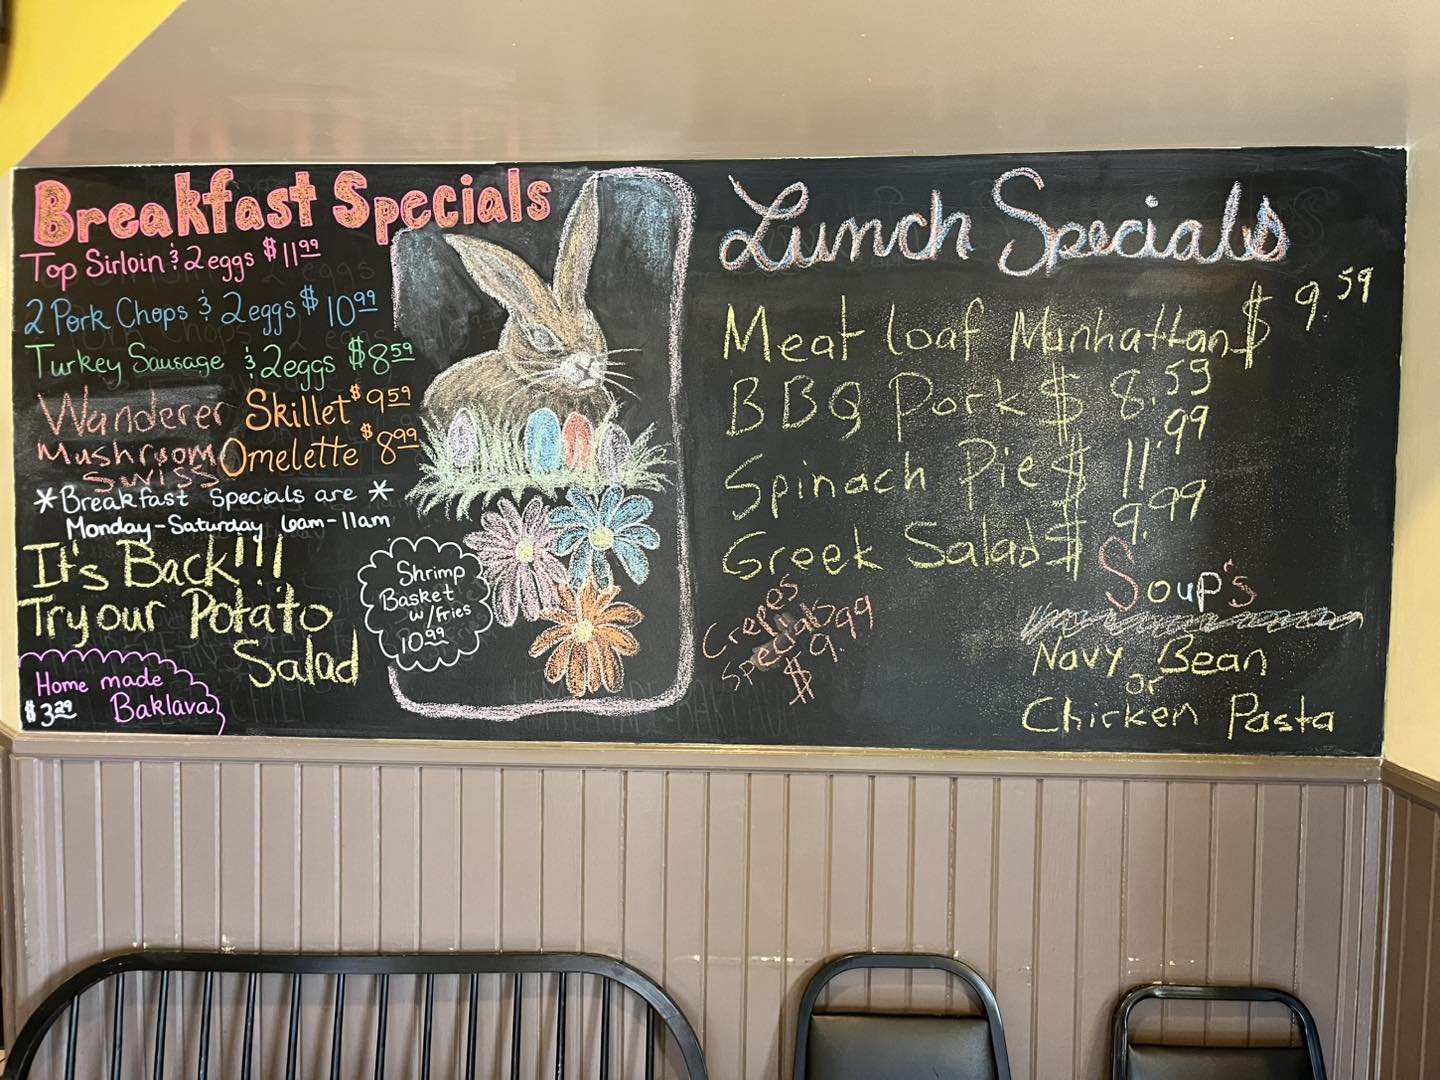 Breakfast Specials
Top Sirloin & 2 eggs $11.99
2 Pork Chops & 2 eggs $10.99
Turkey Sausage & 2 eggs $8.59
Wanderer Skillet $9.59
Mushroom Omelette $8.99
Swiss
*Breakfast Specials are*
Monday-Saturday 6am-11am
It's Back!!!
Try our Potato
Salad
Home made
$3.29 Baklava
Shrimp
Basket
w/fries
10.99
Lunch Specials
Meat loaf Manhattan $9.59
BBQ Pork $8.59
Spinach Pie $11.99
Greek Salad $9.99
Crepes
Specials
$9.99
Soup's
Navy Bean
or
Chicken Pasta